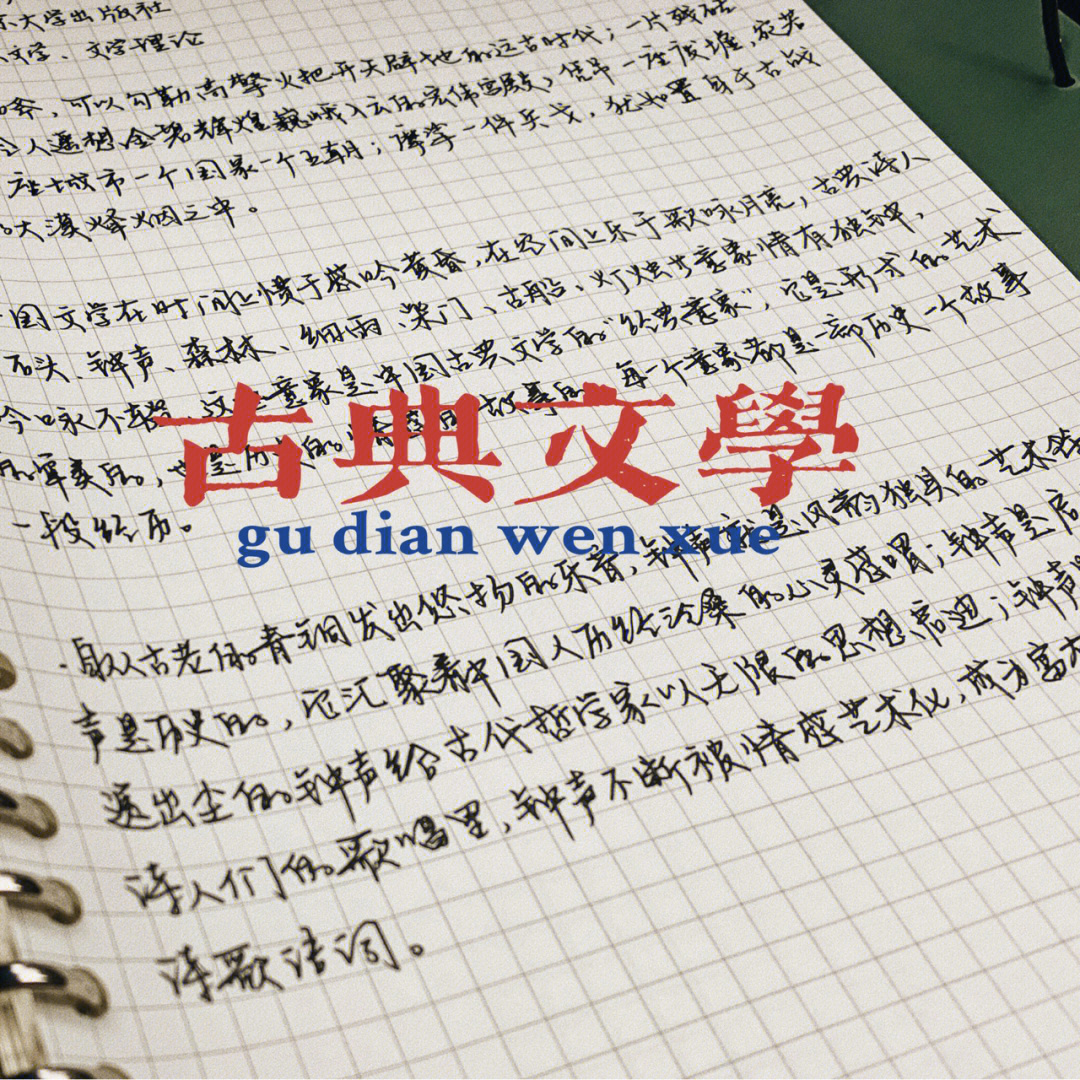 东大学出版社
文学、文学理论
可以勾勒高擎火把开天辟地的远古时代；一片残砖
令人遥想金碧辉煌巍峨入云的宏伟宫殿；凭吊一座废墟，宛若
座城市一个国家一个王朝；摩挲一件兵戈，犹如置身于古战
大漠烽火烟之中。
国文学在时间上惯于悲吟黄昏，在空间上乐于歌咏月亮，古典诗人
石头、钟声、森林、细雨、柴门、古船、灯烛等意象情有独钟，
吟咏不辍，这些意象是中国古典文学的“经典意象”，它是形式的艺术
的审美的，也是历史的情感的故事的，每一个意象都是一部历史一个故事
一段经历。
古典文學
gu dian wen xue
取以古老的青铜发出悠扬的乐音，钟声就是风韵独具的艺术
声是历史的，它汇聚着中国人历经沧桑的心灵感喟；钟声是
遥出尘的钟声给古代哲学家以无限的思想启迪；钟声
诗人们的歌唱里，钟声不断被情感艺术化，成为富
诗歌语词。